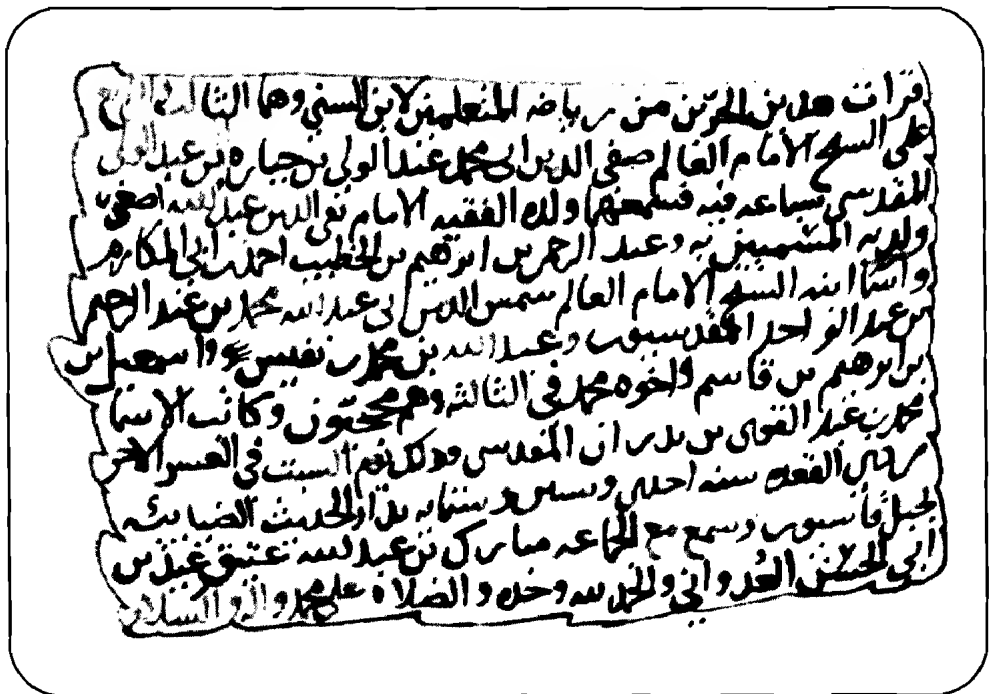 قرات هذين الجزئين من رياضه المتعلمين لابن السني وهما الثالث والرابع
على الشيخ الامام العالم صفي الدين ابي محمد عبد الولي بن جباره بن عبد الولي
المقدسي بسماعه فيه فسمعهما ولده الفقيه الامام تقي الدين عبد الله
ولديه المسميين به وعبد الرحمن بن ابرهيم بن الخطيب احمد بن ابي المكارم
واسما ابنه الشيخ الامام العالم شمس الدين ابي عبد الله محمد بن عبد الرحيم
بن عبد الواحد المقدسيون وعبد الله بن محمد بن نفيس واسمعيل بن
بن ابرهيم بن قاسم واخوه محمد في الثالثه وهم وكاتب الاسما
محمد بن عبد القوي بن بدران المقدسي وذلك يوم السبت في العشر الاخر
من ذي القعده سنه احدى وستين وستمايه بدار الحديث الضيائيه
بجبل قاسيون وسمع مع الجماعه مبارك بن عبد الله عتيق عبد بن
ابي الحسن العدواني والحمد لله وحده والصلاه على محمد واله والسلام